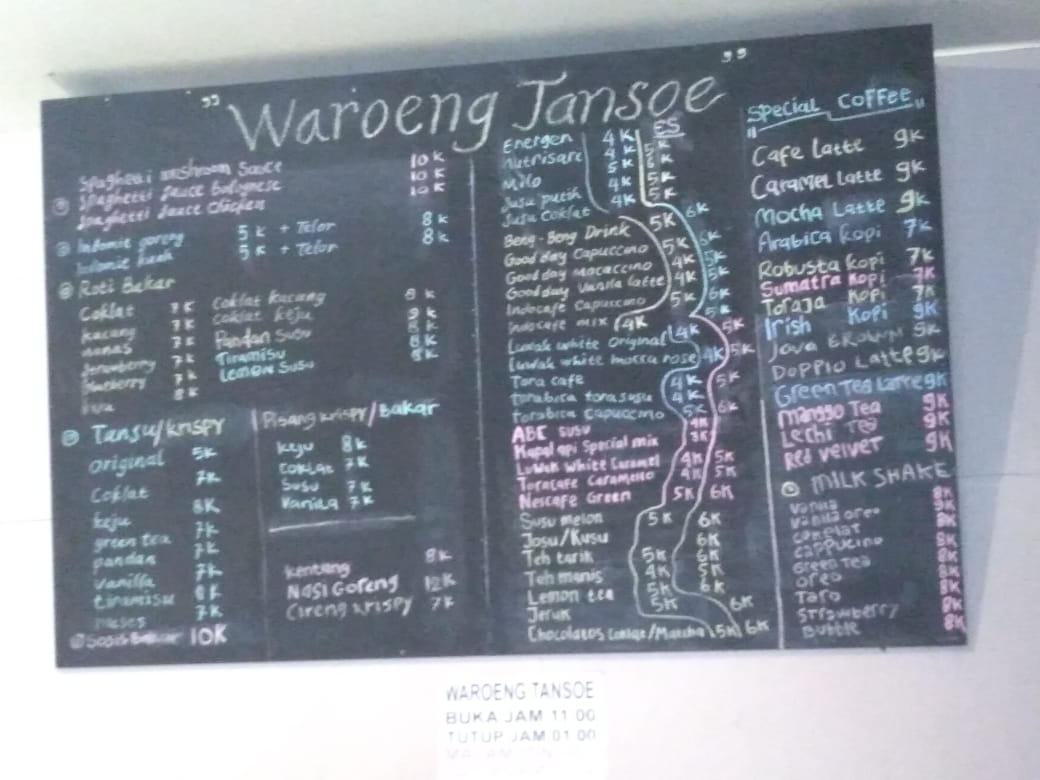 " Waroeng Tansoe "
Spaghetti mushroom Sauce 10K
Spaghetti Sauce Bolognese 10K
Spaghetti Sauce Chicken 10K
Indomie goreng 5K + Telor 8K
Indomie kuah 5K + Telor 8K
Roti Bakar
Coklat 7K
kacang 7K
nanas 7K
strawberry 7K
blueberry 7K
8K
Coklat kacang 9K
Coklat keju 9K
Pandan Susu 8K
Tiramisu 8K
Lemon Susu 8K
Tansu/krispy
original 5K
Coklat 7K
keju 8K
green tea 7K
pandan 7K
Vanilla 7K
tiramisu 8K
meses 7K
Sosis Bakar 10K
Pisang krispy/Bakar
keju 8K
Coklat 7K
Susu 7K
Vanila 7K
kentang 8K
Nasi Goreng 12K
Cireng krispy 7K
ES
Energen 4K 5K
Nutrisari 4K 5K
Milo 5K 5K
Susu putih 4K 5K
Susu Coklat 4K 6K
Beng-Beng Drink 5K 6K
Good day Capuccino 5K 5K
Good day Mocaccino 4K 5K
Good day Vanilla latte 4K 6K
Indocafe Capuccino 5K 5K
Indocafe mix 4K 5K
Luwak white Original 4K 5K
Luwak white mocca rose 4K 5K
Tora cafe 4K 5K
torabica torasusu 4K 6K
torabica Capuccino 5K
ABC susu
Kapal api Special mix
Luwak White Caramel 4K 5K
Toracafe Caramello 4K 5K
Nescafe Green 5K 6K
Susu melon 5K 6K
Josu/Kusu 6K
Teh tarik 5K 6K
Teh manis 4K 5K
Lemon tea 5K 6K
Jeruk 5K 6K
Chocolatos Coklat/Matcha 5K 6K
Special Coffee
Cafe Latte 9K
Caramel Latte 9K
Mocha Latte 9K
Arabica Kopi 7K
Robusta Kopi 7K
Sumatra Kopi 7K
Toraja Kopi 7K
Irish Kopi 9K
Java Brown 9K
Doppio Latte 9K
Green Tea Latte 9K
Manggo Tea 9K
Lechi Tea 9K
Red Velvet 9K
MILK SHAKE
Vanila 8K
Vanila oreo 8K
Coklat 8K
Cappucino 8K
Green Tea 8K
Oreo 8K
Taro 8K
Strawberry 8K
8K
WAROENG TANSOE
BUKA JAM 11:00
TUTUP JAM 01:00